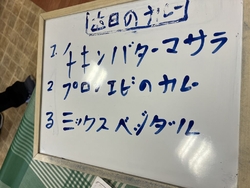 本日のカレー
1. チキンバターマサラ
2 プロンエビのカレー
3 ミックスベジダル